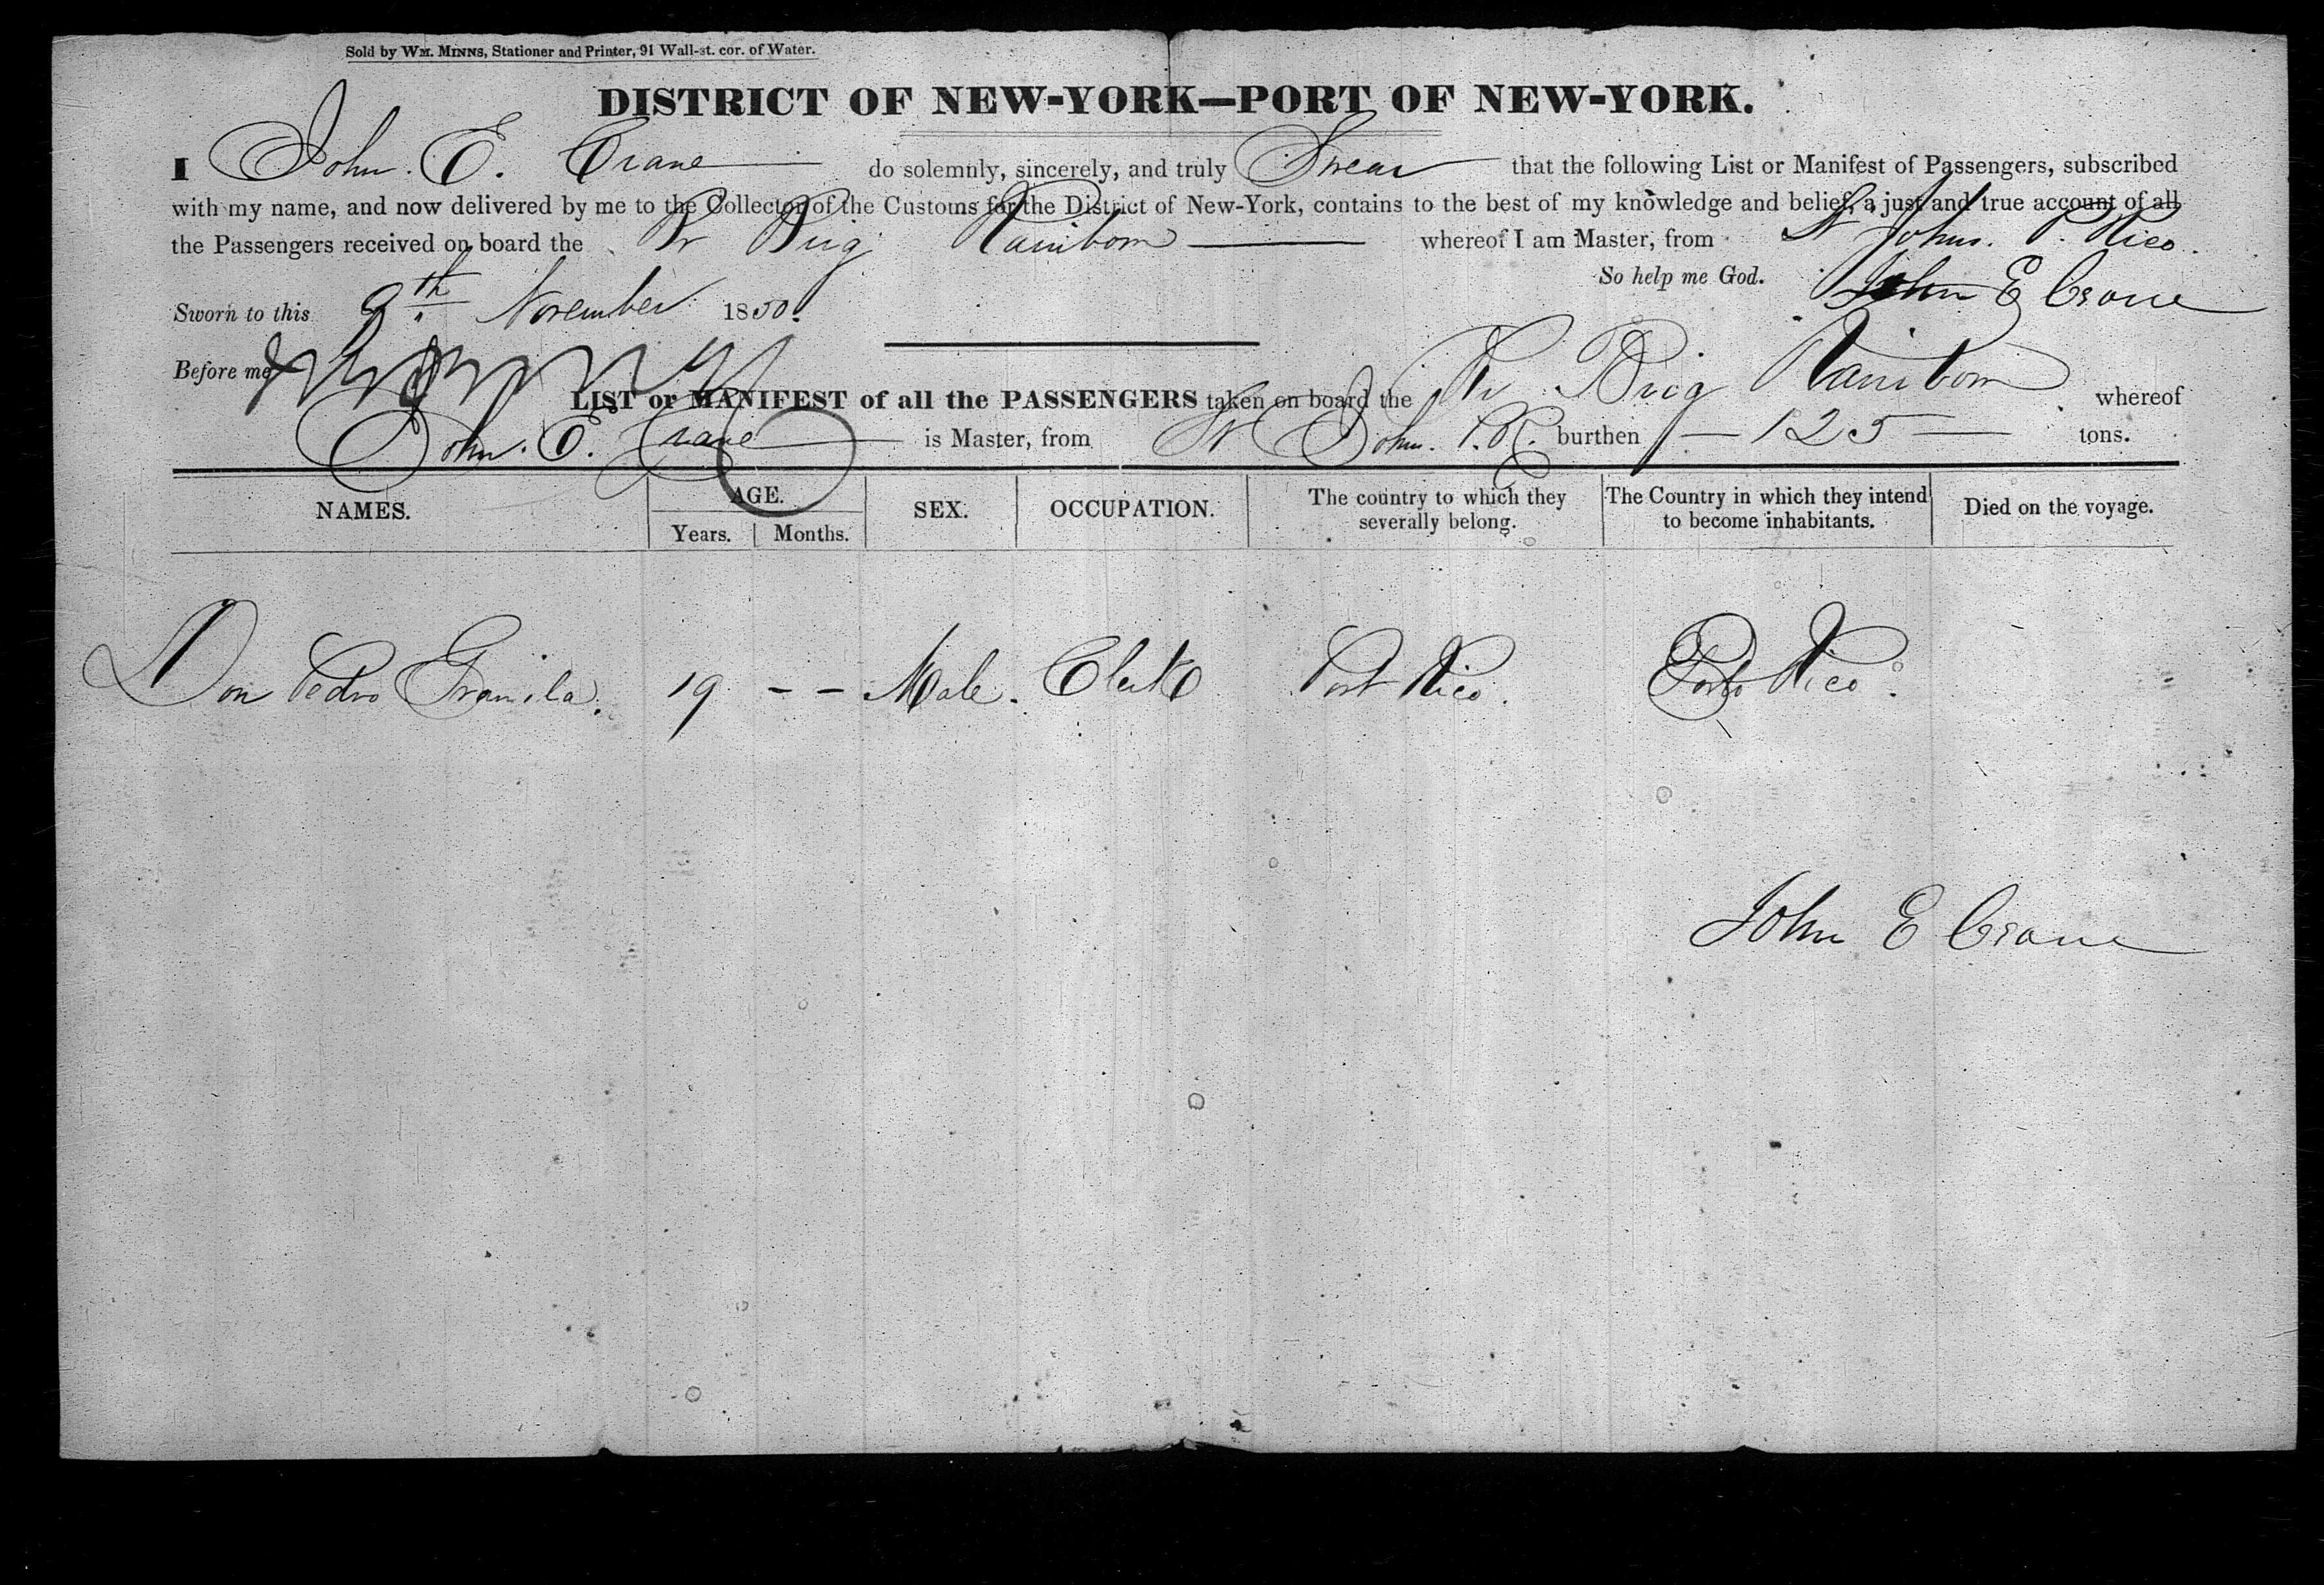 Sold by WM. MINNS, Stationer and Printer, 91 Wall-st. cor. of Water.
DISTRICT OF NEW-YORK—PORT OF NEW-YORK.
I John. E. Crane do solemnly, sincerely, and truly Swear that the following List or Manifest of Passengers, subscribed
with my name, and now delivered by me to the Collector of the Customs for the District of New-York, contains to the best of my knowledge and belief, a just and true account of all
the Passengers received on board the Br Brig Rainbow whereof I am Master, from St Johns. P. Rico.
So help me God. John E Crane
Sworn to this 9th November 1850.
Before me
LIST or MANIFEST of all the PASSENGERS taken on board the Br Brig Rainbow whereof
John. E. Crane is Master, from St John. P. R. burthen 125 tons.
NAMES. AGE. SEX. OCCUPATION. The country to which they severally belong. The Country in which they intend to become inhabitants. Died on the voyage.
Years. Months.
Don Pedro Gramila. 19 - - Male. Clerk Port Rico. Porto Rico.
John E Crane